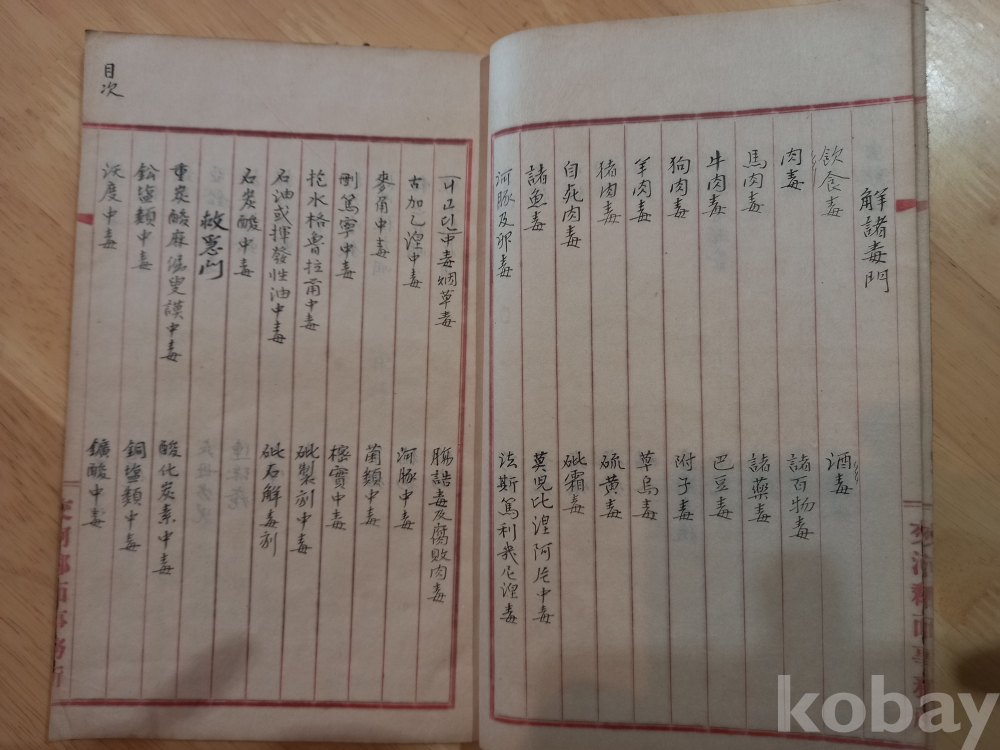 解諸毒門
飲食毒 酒毒
肉毒 諸百物毒
馬肉毒 諸藥毒
牛肉毒 巴豆毒
狗肉毒 附子毒
羊肉毒 草烏毒
猪肉毒 硫黄毒
自死肉毒 砒霜毒
諸魚毒 莫児比涅阿片中毒
河豚及卵毒 法斯篤利幾尼涅毒
니고딘中毒烟草毒 腸詰毒及腐敗肉毒
古加乙涅中毒 河豚中毒
麥角中毒 菌類中毒
刪篤寧中毒 樒實中毒
抱水格魯拉爾中毒 砒製剤中毒
石油或揮發性油中毒 砒石解毒剤
石炭酸中毒
救急門
重炭酸麻倔叟謨中毒 酸化炭素中毒
鉛塩類中毒 銅塩類中毒
沃度中毒 鑛酸中毒
目次
面事務所
kobay